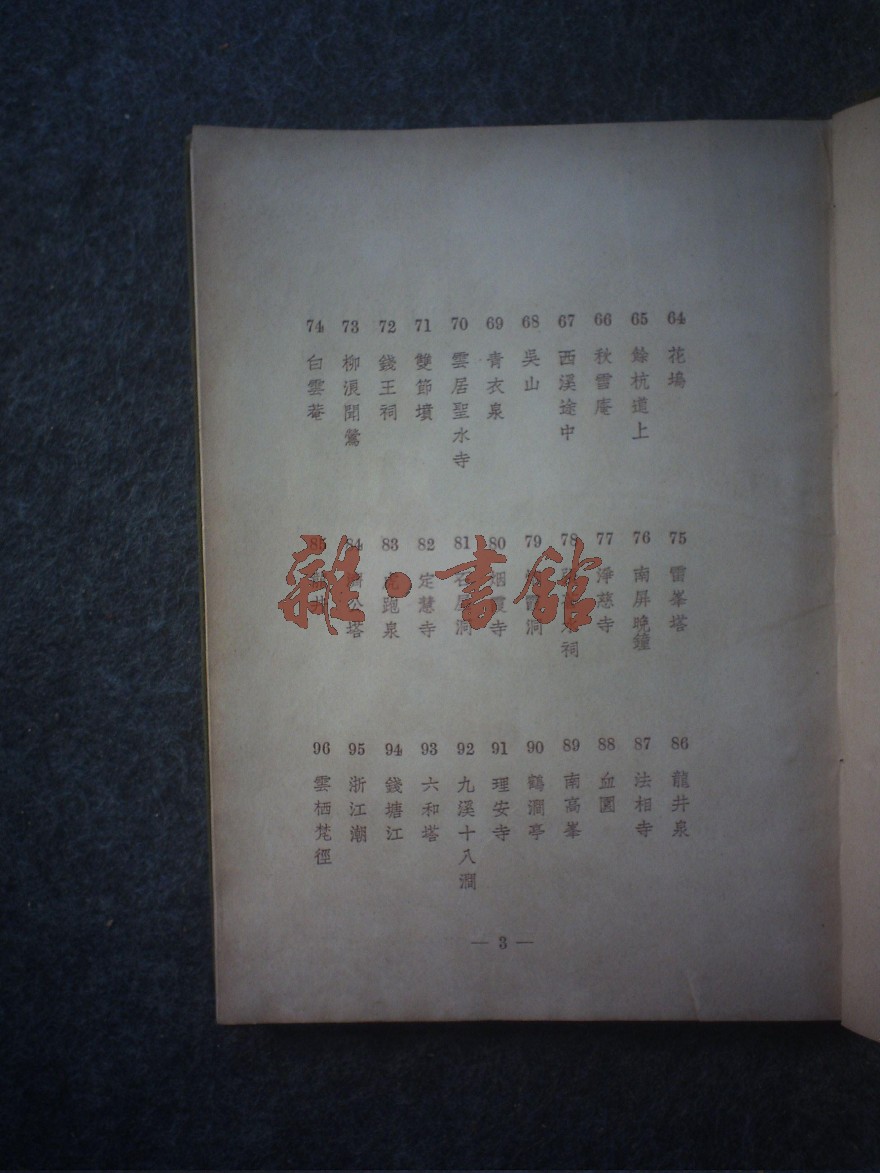 64 花塢
65 餘杭道上
66 秋雪庵
67 西溪途中
68 吳山
69 青衣泉
70 雲居聖水寺
71 雙節墳
72 錢王祠
73 柳浪聞鶯
74 白雲菴
75 雷峯塔
76 南屏晚鐘
77 淨慈寺
78 祠
79 洞
80 烟霞寺
81 石屋洞
82 定慧寺
83 虎跑泉
84 濟公塔
85
86 龍井泉
87 法相寺
88 血園
89 南高峯
90 鶴澗亭
91 理安寺
92 九溪十八澗
93 六和塔
94 錢塘江
95 浙江潮
96 雲栖梵徑
— 3 —
雜·書館